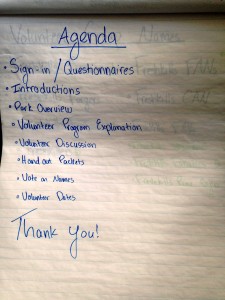 Agenda
• Sign-in / Questionnaires
• Introductions
• Park Overview
• Volunteer Program Explanation
• Volunteer Discussion
• Hand out Packets
• Vote on Names
• Volunteer Dates
Thank you!